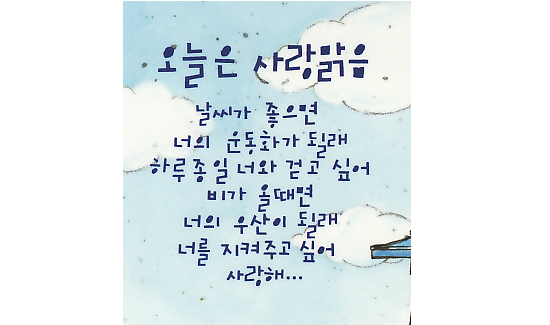 오늘은 사랑맑음
날씨가 좋으면
너의 운동화가 될래
하루종일 너와 걷고 싶어
비가 올때면
너의 우산이 될래
너를 지켜주고 싶어
사랑해...